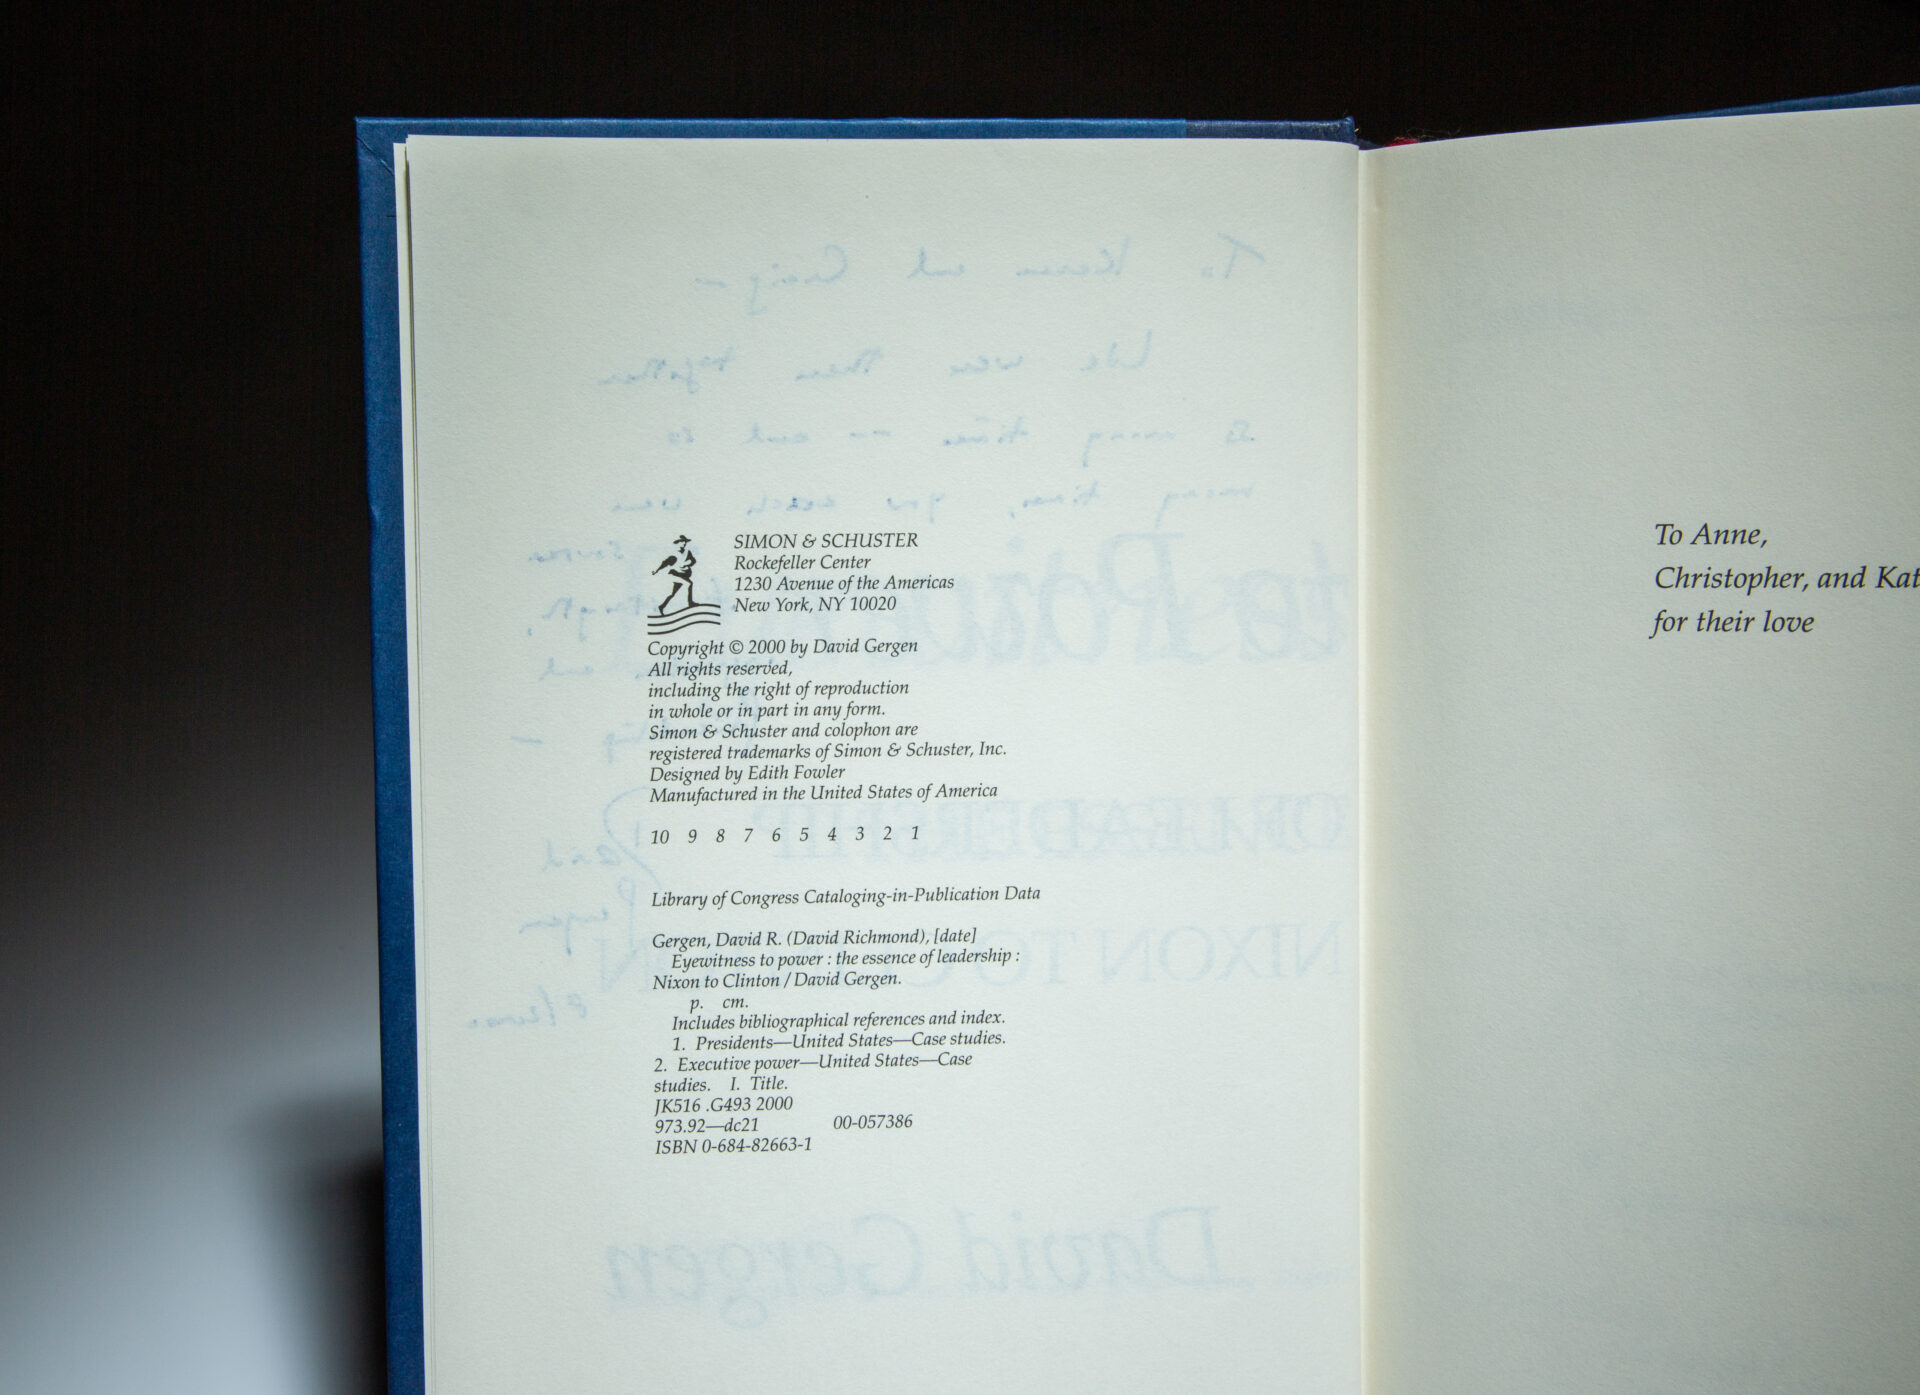 SIMON & SCHUSTER
Rockefeller Center
1230 Avenue of the Americas
New York, NY 10020
Copyright © 2000 by David Gergen
All rights reserved,
including the right of reproduction
in whole or in part in any form.
Simon & Schuster and colophon are
registered trademarks of Simon & Schuster, Inc.
Designed by Edith Fowler
Manufactured in the United States of America
10 9 8 7 6 5 4 3 2 1
Library of Congress Cataloging-in-Publication Data
Gergen, David R. (David Richmond), [date]
Eyewitness to power : the essence of leadership :
Nixon to Clinton / David Gergen.
p. cm.
Includes bibliographical references and index.
1. Presidents—United States—Case studies.
2. Executive power—United States—Case
studies. I. Title.
JK516 .G493 2000
973.92—dc21 00-057386
ISBN 0-684-82663-1
David Gergen
To Anne,
Christopher, and Kat
for their love